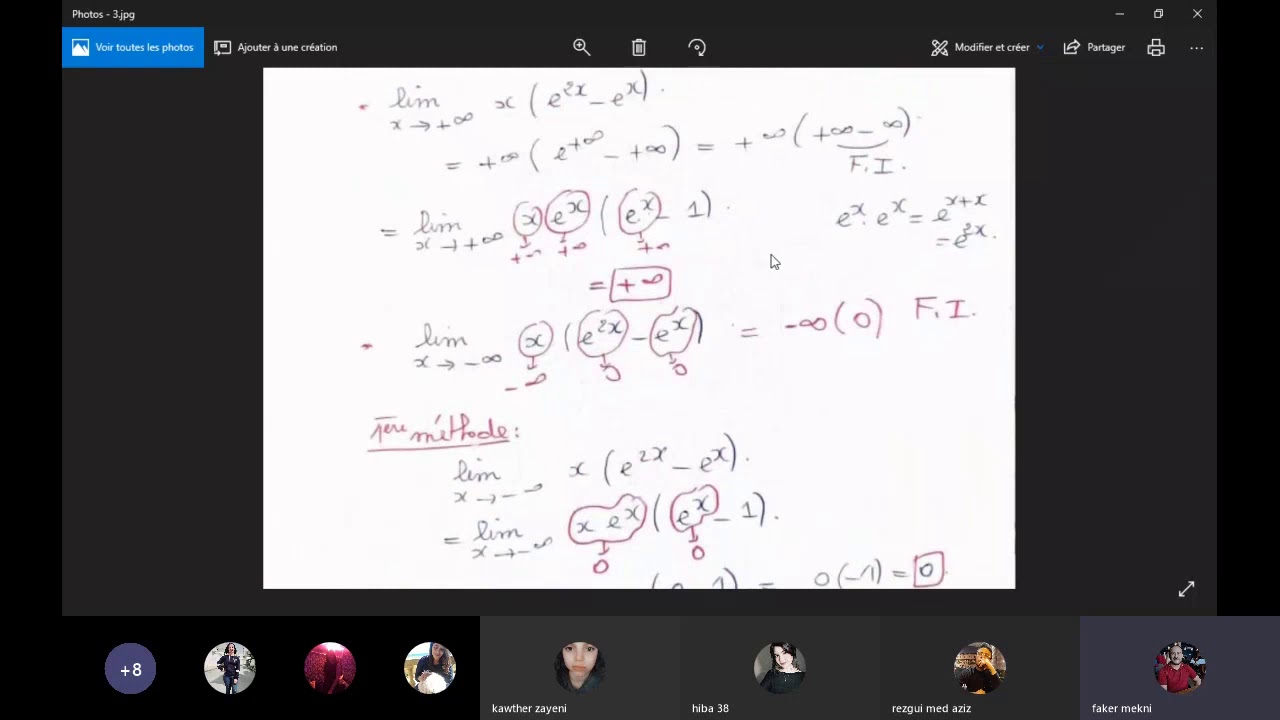 Photos - 3.jpg
Voir toutes les photos
Ajouter à une création
Modifier et créer
Partager
• lim x→+∞ x (e^2x – e^x).
= +∞ (e^+∞ – +∞) = +∞ (+∞ – ∞)
F.I.
= lim x→+∞ x e^x (e^x – 1).
+∞ +∞ +∞
e^x · e^x = e^x+x
= e^2x.
= +∞
• lim x→-∞ x (e^2x – e^x) = -∞ (0) F.I.
-∞ 0 0
1ère méthode :
lim x→-∞ x (e^2x – e^x).
= lim x→-∞ x e^x (e^x – 1).
0 0
0(-1) = 0
+8
kawther zayeni
hiba 38
rezgui med aziz
faker mekni